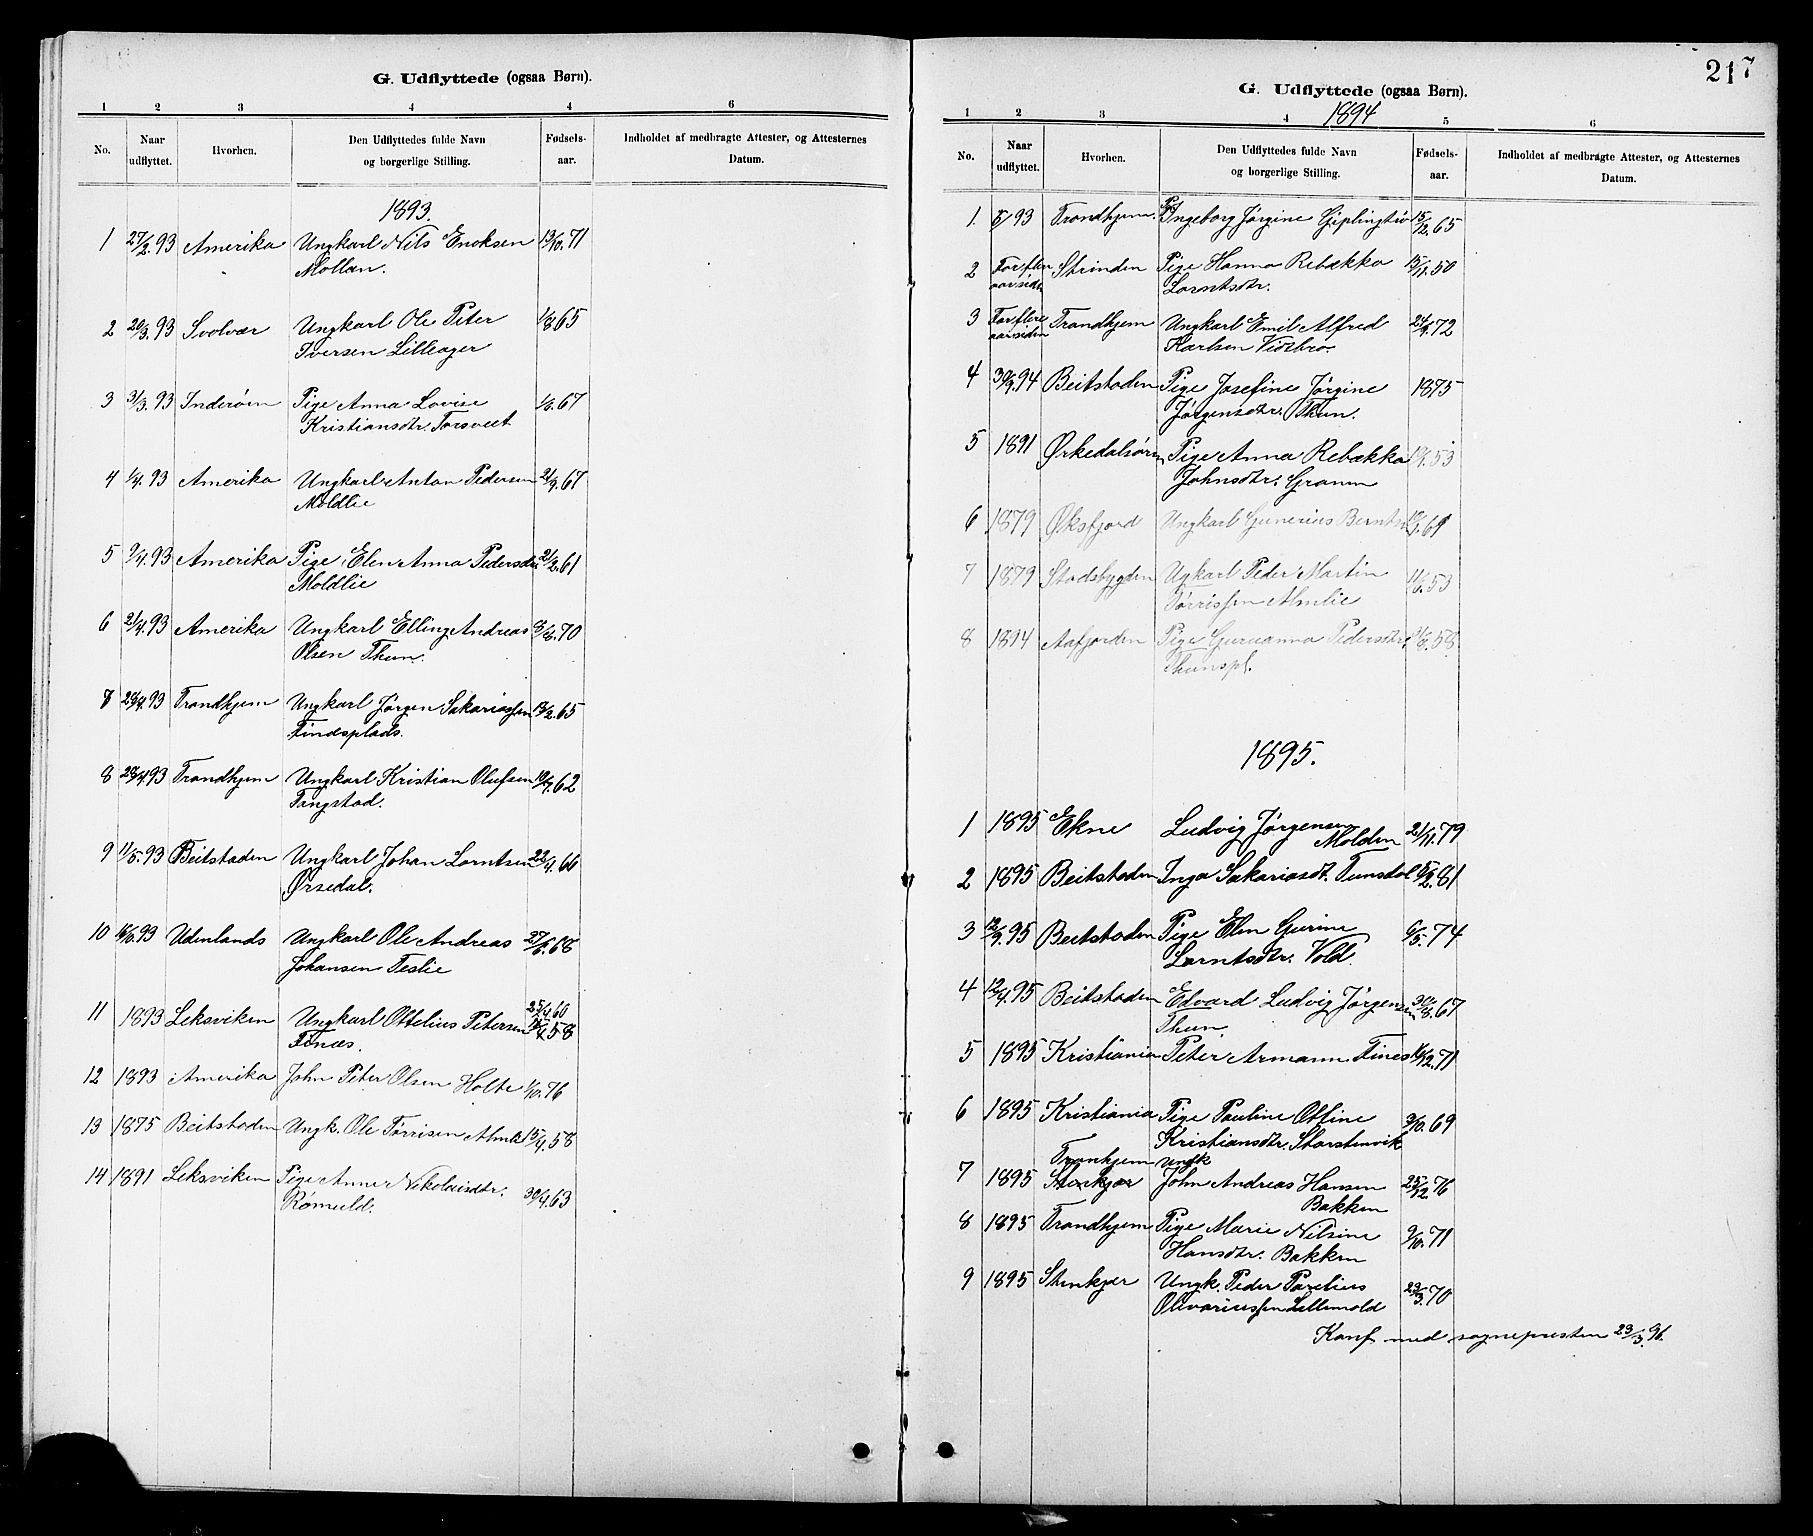 G. Udflyttede (ogsaa Børn).
1 2 3 4 4 6
No. Naar udflyttet. Hvorhen. Den Udflyttedes fulde Navn og borgerlige Stilling. Fødsels-aar. Indholdet af medbragte Attester, og Attesternes Datum.
1893.
1 27/2.93 Amerika Ungkarl Nils Enoksen 13/10.71
Mollan.
2 20/3.93 Svolvær Ungkarl Ole Peter 1/8 65
Iversen Lilleager
3 3/3.93 Inderøen Pige Anna Lovise 1/6.67
Kristiansdtr. Torsveet
4 1/4.93 Amerika Ungkarl Anton Pedersen 21/9.67
Moldlie
5 9/4.93 Amerika Pige Elen Anna Pedersdtr 21/2.61
Moldlie
6 21/4.93 Amerika Ungkarl Elling Andreas 70
Olsen Thun.
7 28/4.93 Trondhjem Ungkarl Jørgen Sakariassen 13/2.65
Findsplads.
8 28/4.93 Trondhjem Ungkarl Kristian Olufsen 10/7.62
Tangstad.
9 11/5.93 Beitstaden Ungkarl Johan Lorntsen 22/4.66
Ørsedal.
10 16/6.93 Udenlands Ungkarl Ole Andreas 27/6.68
Johansen Teslie
11 1893 Leksviken Ungkarl Ottelius Petersen 25/4 60
Finæs. 58
12 1893 Amerika John Peter Olsen Holte 1/10.76
13 1875 Beitstaden Ungk. Ole Tørrisen Almli 15/4.58
14 1891 Leksviken Pige Anne Nikolaisdtr. 30/4.63
Rømuld.
217
G. Udflyttede (ogsaa Børn).
1894
1 2 3 4 5 6
No. Naar udflyttet. Hvorhen. Den Udflyttedes fulde Navn og borgerlige Stilling. Fødsels-aar. Indholdet af medbragte Attester, og Attesternes Datum.
1. 93 Trondhjem. Ingeborg Jørgine 15/12.65
2 For flere aar siden Strinden Pige Hanna Rebækka 15/11.50
Lorntsdtr.
3 For flere aar siden Trondhjem Ungkarl Emil Alfred 24/9.72
Karlsen Vidsbro.
4 30/3.94 Beitstaden Pige Josefine Jørgine 1875
Jørgensdtr. Thun.
5 1891 Ørkedalsøren Pige Anna Rebækka 53
Johnsdtr. Granm
6 1879 Øksfjord Ungkarl Gunerius Berntsn 69
7 1879 Stadsbygden Ugkarl Peder Martin 11/6.53
Tørrissen Almlie
8 1894 Aafjorden Pige Guruanna Pedersdtr. 58.
Thunspl.
1895.
1 1895 Ekne Ludvig Jørgensen 21/11.79
Molden
2 1895 Beitstaden Inga Sakariasdt. Tunsdal 81
3 12/9.95 Beitstaden Pige Elen Gurine 6/5.74
Lorntsdtr. Vold.
4 12/4.95 Beitstaden Edvard Ludvig Jørgensen 30/8.67
Thun.
5 1895 Kristiania Peter Armann Fines 12.71
6 1895 Kristiania Pige Pauline Otline 3/10.69
Kristiansdtr. Storstenvik
Tronhjem Ungk
7 1895 Stenkjær John Andreas Hansen 25/12.76
Bakken
8 1895 Trondhjem Pige Marie Nilsine 9/10.71
Hansdtr. Bakken
9 1895 Stenkjer Ungk. Peder Parelius 23/3.70
Olivariussen Lillemold
Konf med sognepresten 23/3.96.